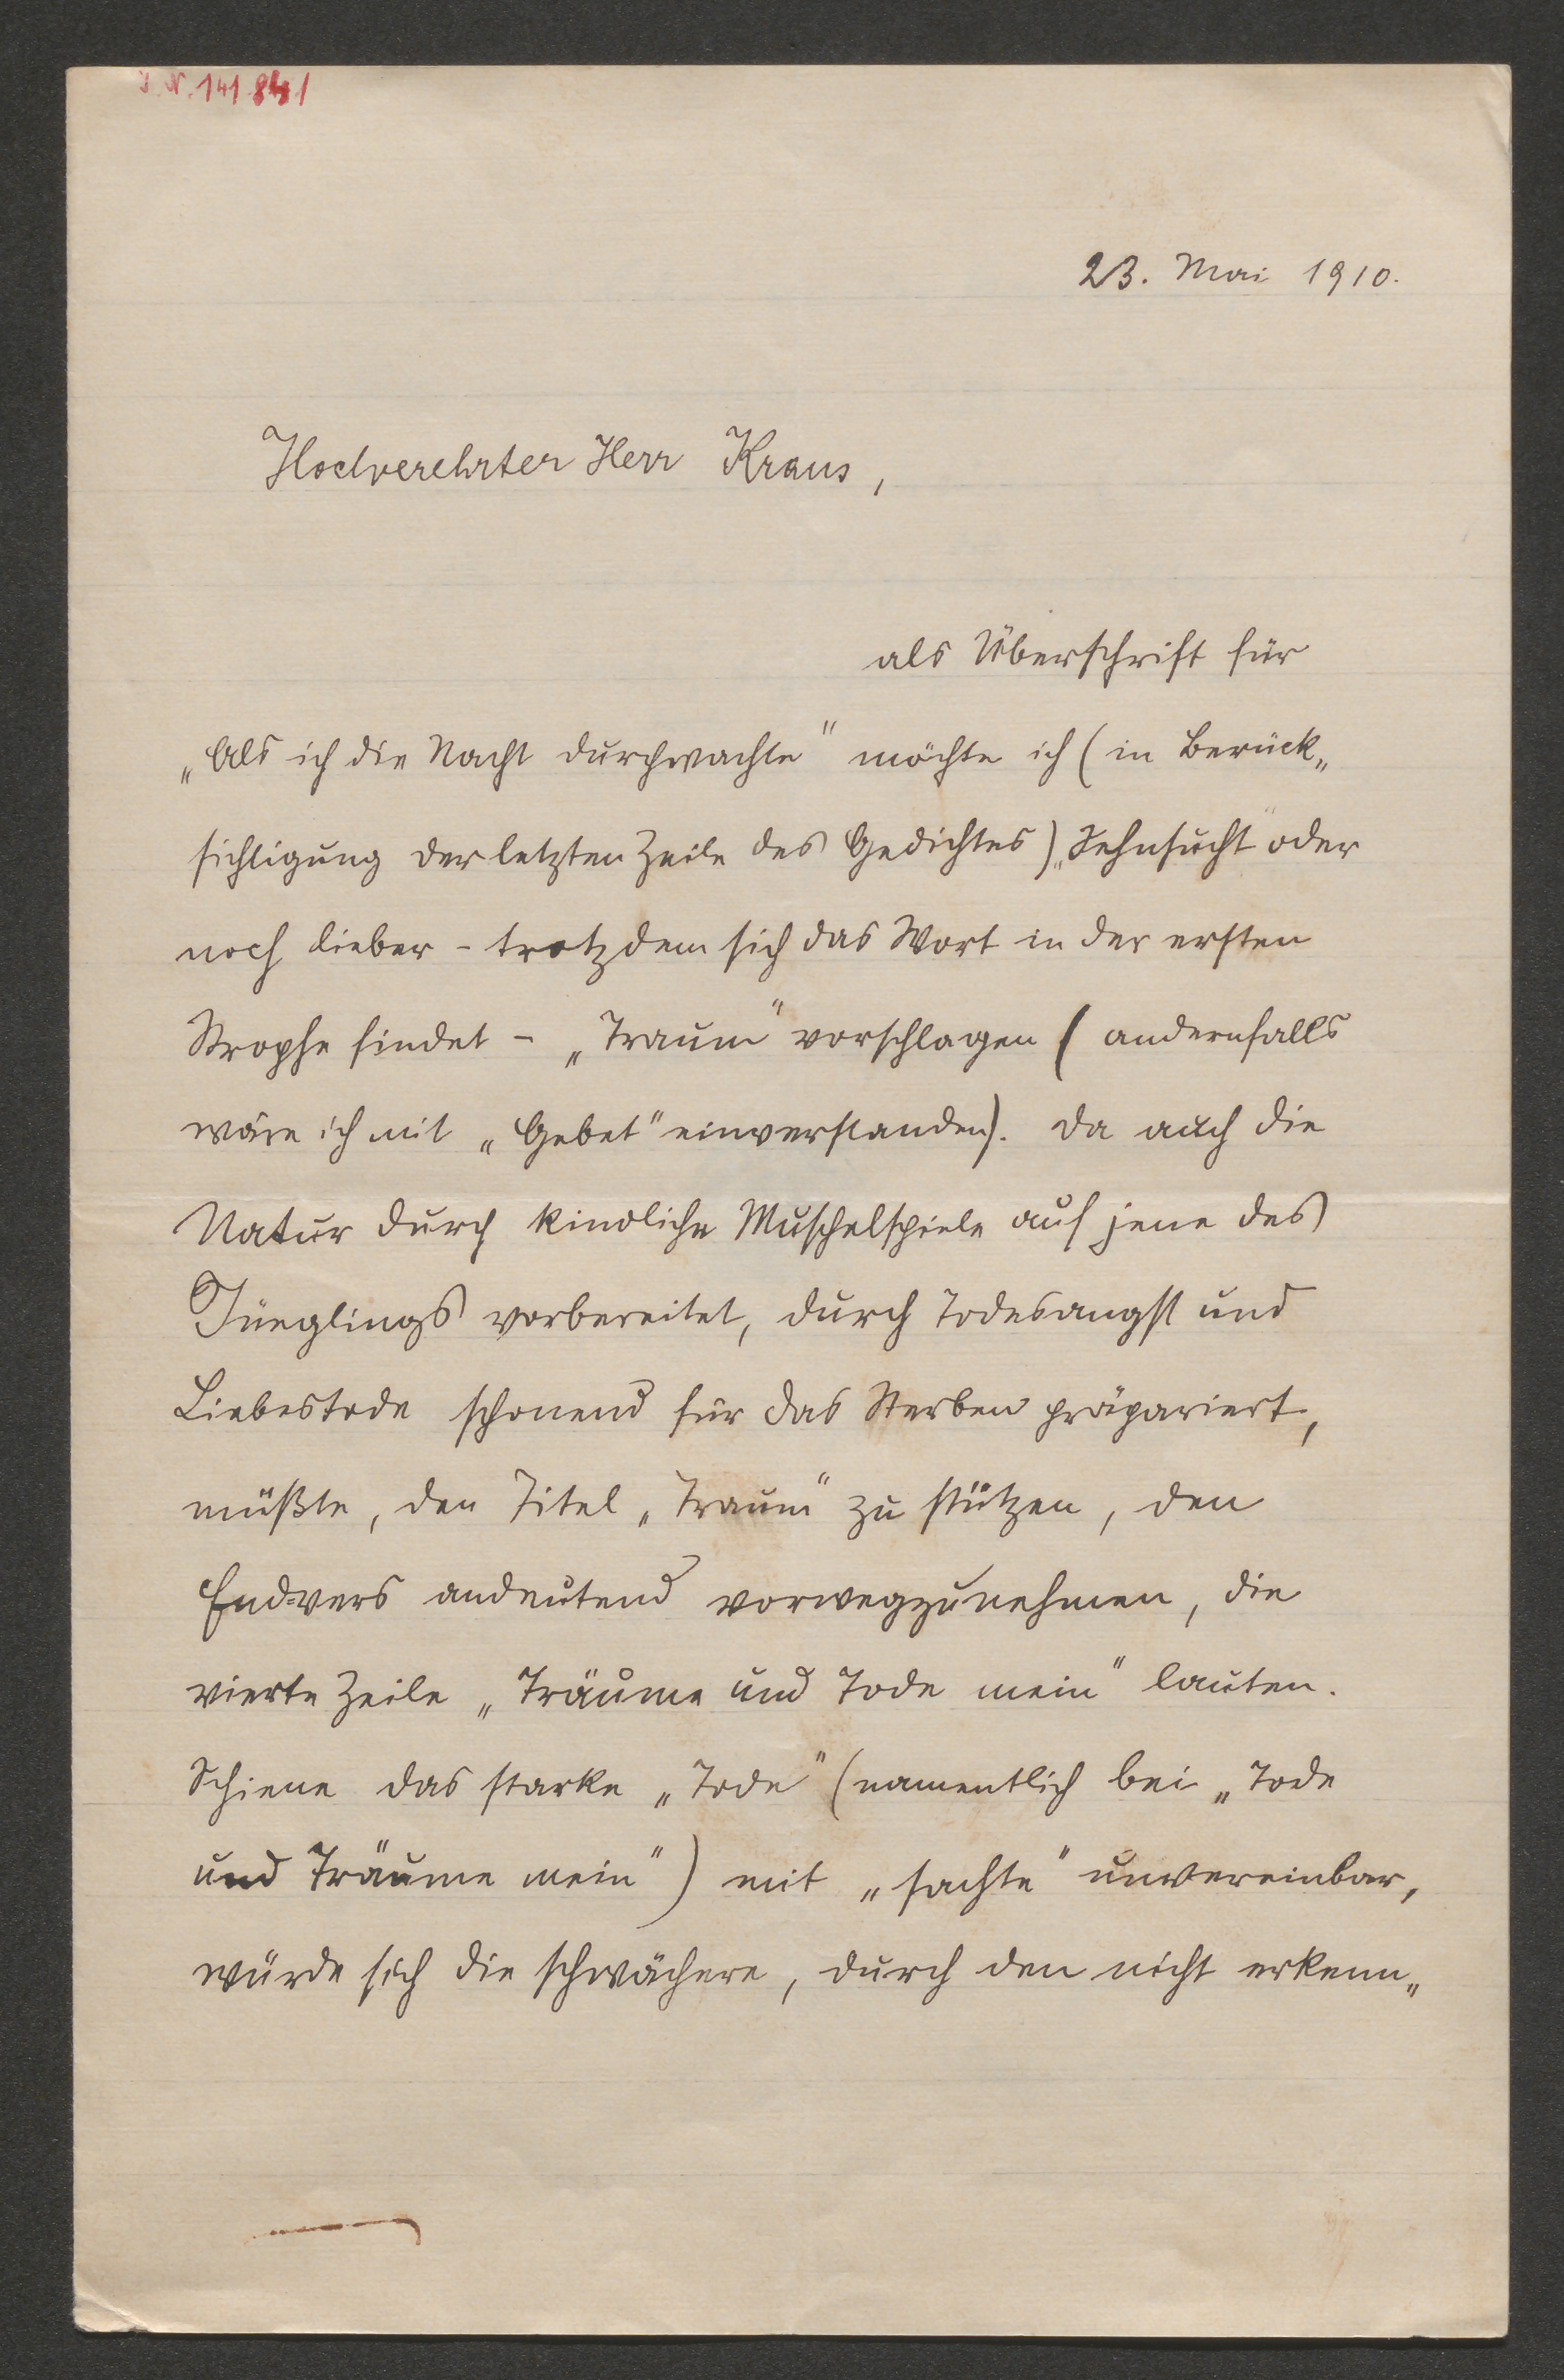 I. N. 141.841
23. Mai 1910.
Hochverehrter Herr Kraus,
als Überschrift für
„Als ich die Nacht durchwachte" möchte ich (in Berück„
sichtigung der letzten Zeile des Gedichtes) „Sehnsucht" oder
noch lieber - trotzdem sich das Wort in der ersten
Strophe findet - „Traum" vorschlagen (andernfalls
wäre ich mit „Gebet" einverstanden). Da auch die
Natur durch kindliche Muschelspiele auf jene des
Jünglings vorbereitet, durch Todesangst und
Liebestode schonend für das Sterben präpariert,
müßte, den Titel „Traum" zu stützen, den
End=vers andeutend vorwegzunehmen, die
vierte Zeile „Träume und Tode mein" lauten.
Schiene das starke „Tode" (namentlich bei „Tode
und Träume mein") mit „sachte" unvereinbar,
würde sich die schwächere, durch den nicht erkenn„